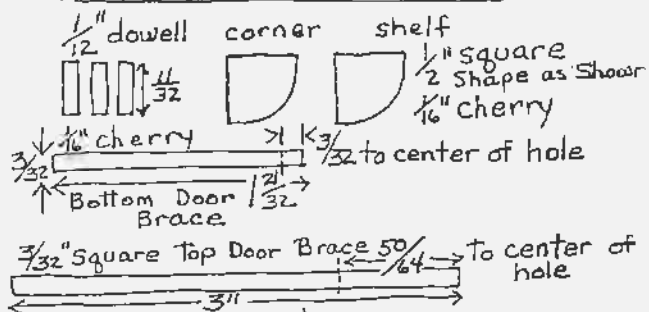 1/12" dowell corner shelf
11/32
1/2" square
Shape as Shown
1/16" cherry
1/16" cherry
3/32
3/32 to center of hole
Bottom Door 1 21/32
Brace
3/32" Square Top Door Brace 50/64 to center of
hole
3"